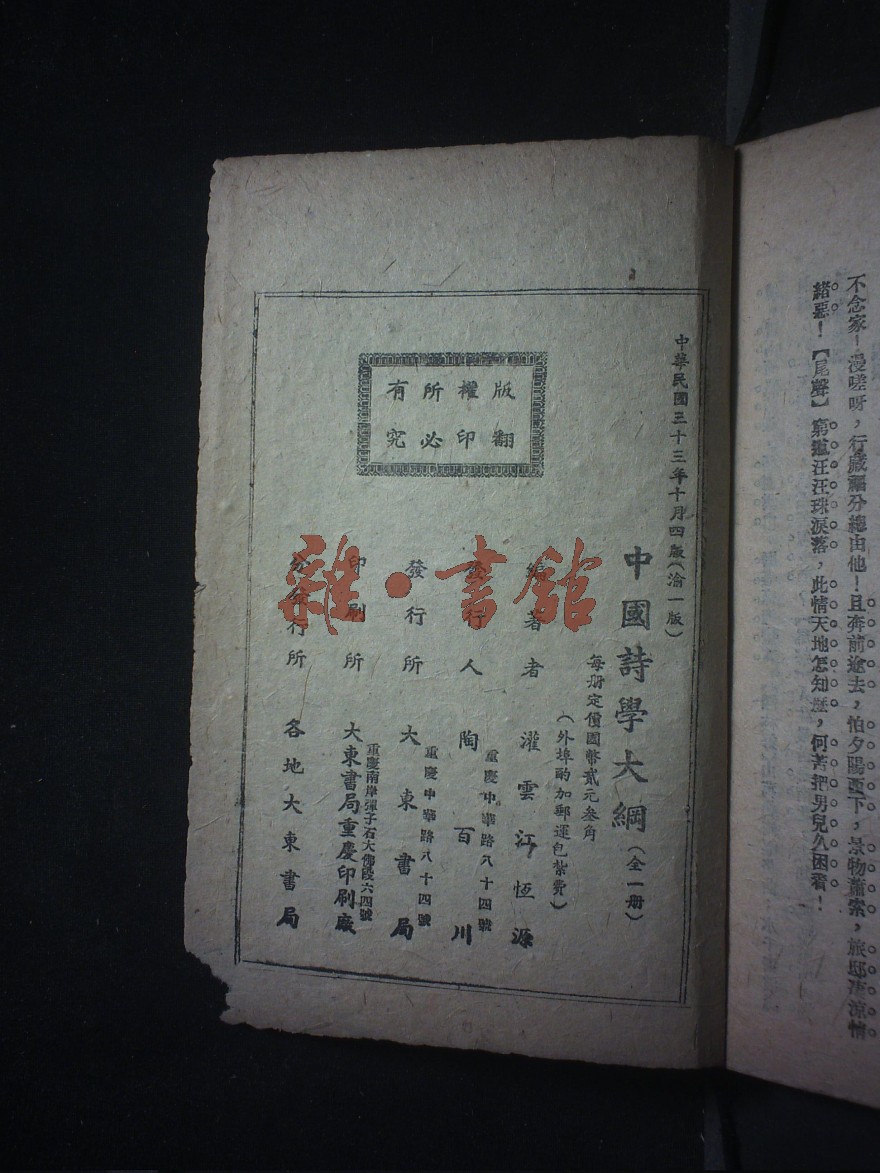 不念家！漫嗟呀，行藏福分總由他！且奔前途去，怕夕陽西下，景物蕭索，旅邸淒涼情
緒惡！【尾聲】窮途汪汪珠淚落，此情天地怎知歷，何苦把男兒久困着！
中華民國三十三年十月四版（渝一版）
中國詩學大綱（全一册）
每册定價國幣貳元叁角
（外埠酌加郵運包紮費）
編著者 灌雲江恒源
發行人 陶百川
重慶中華路八十四號
發行所 大東書局
重慶中華路八十四號
印刷所 大東書局重慶印刷廠
重慶南岸彈子石大佛段六四號
分發行所 各地大東書局
版權所有
翻印必究
雜·書館